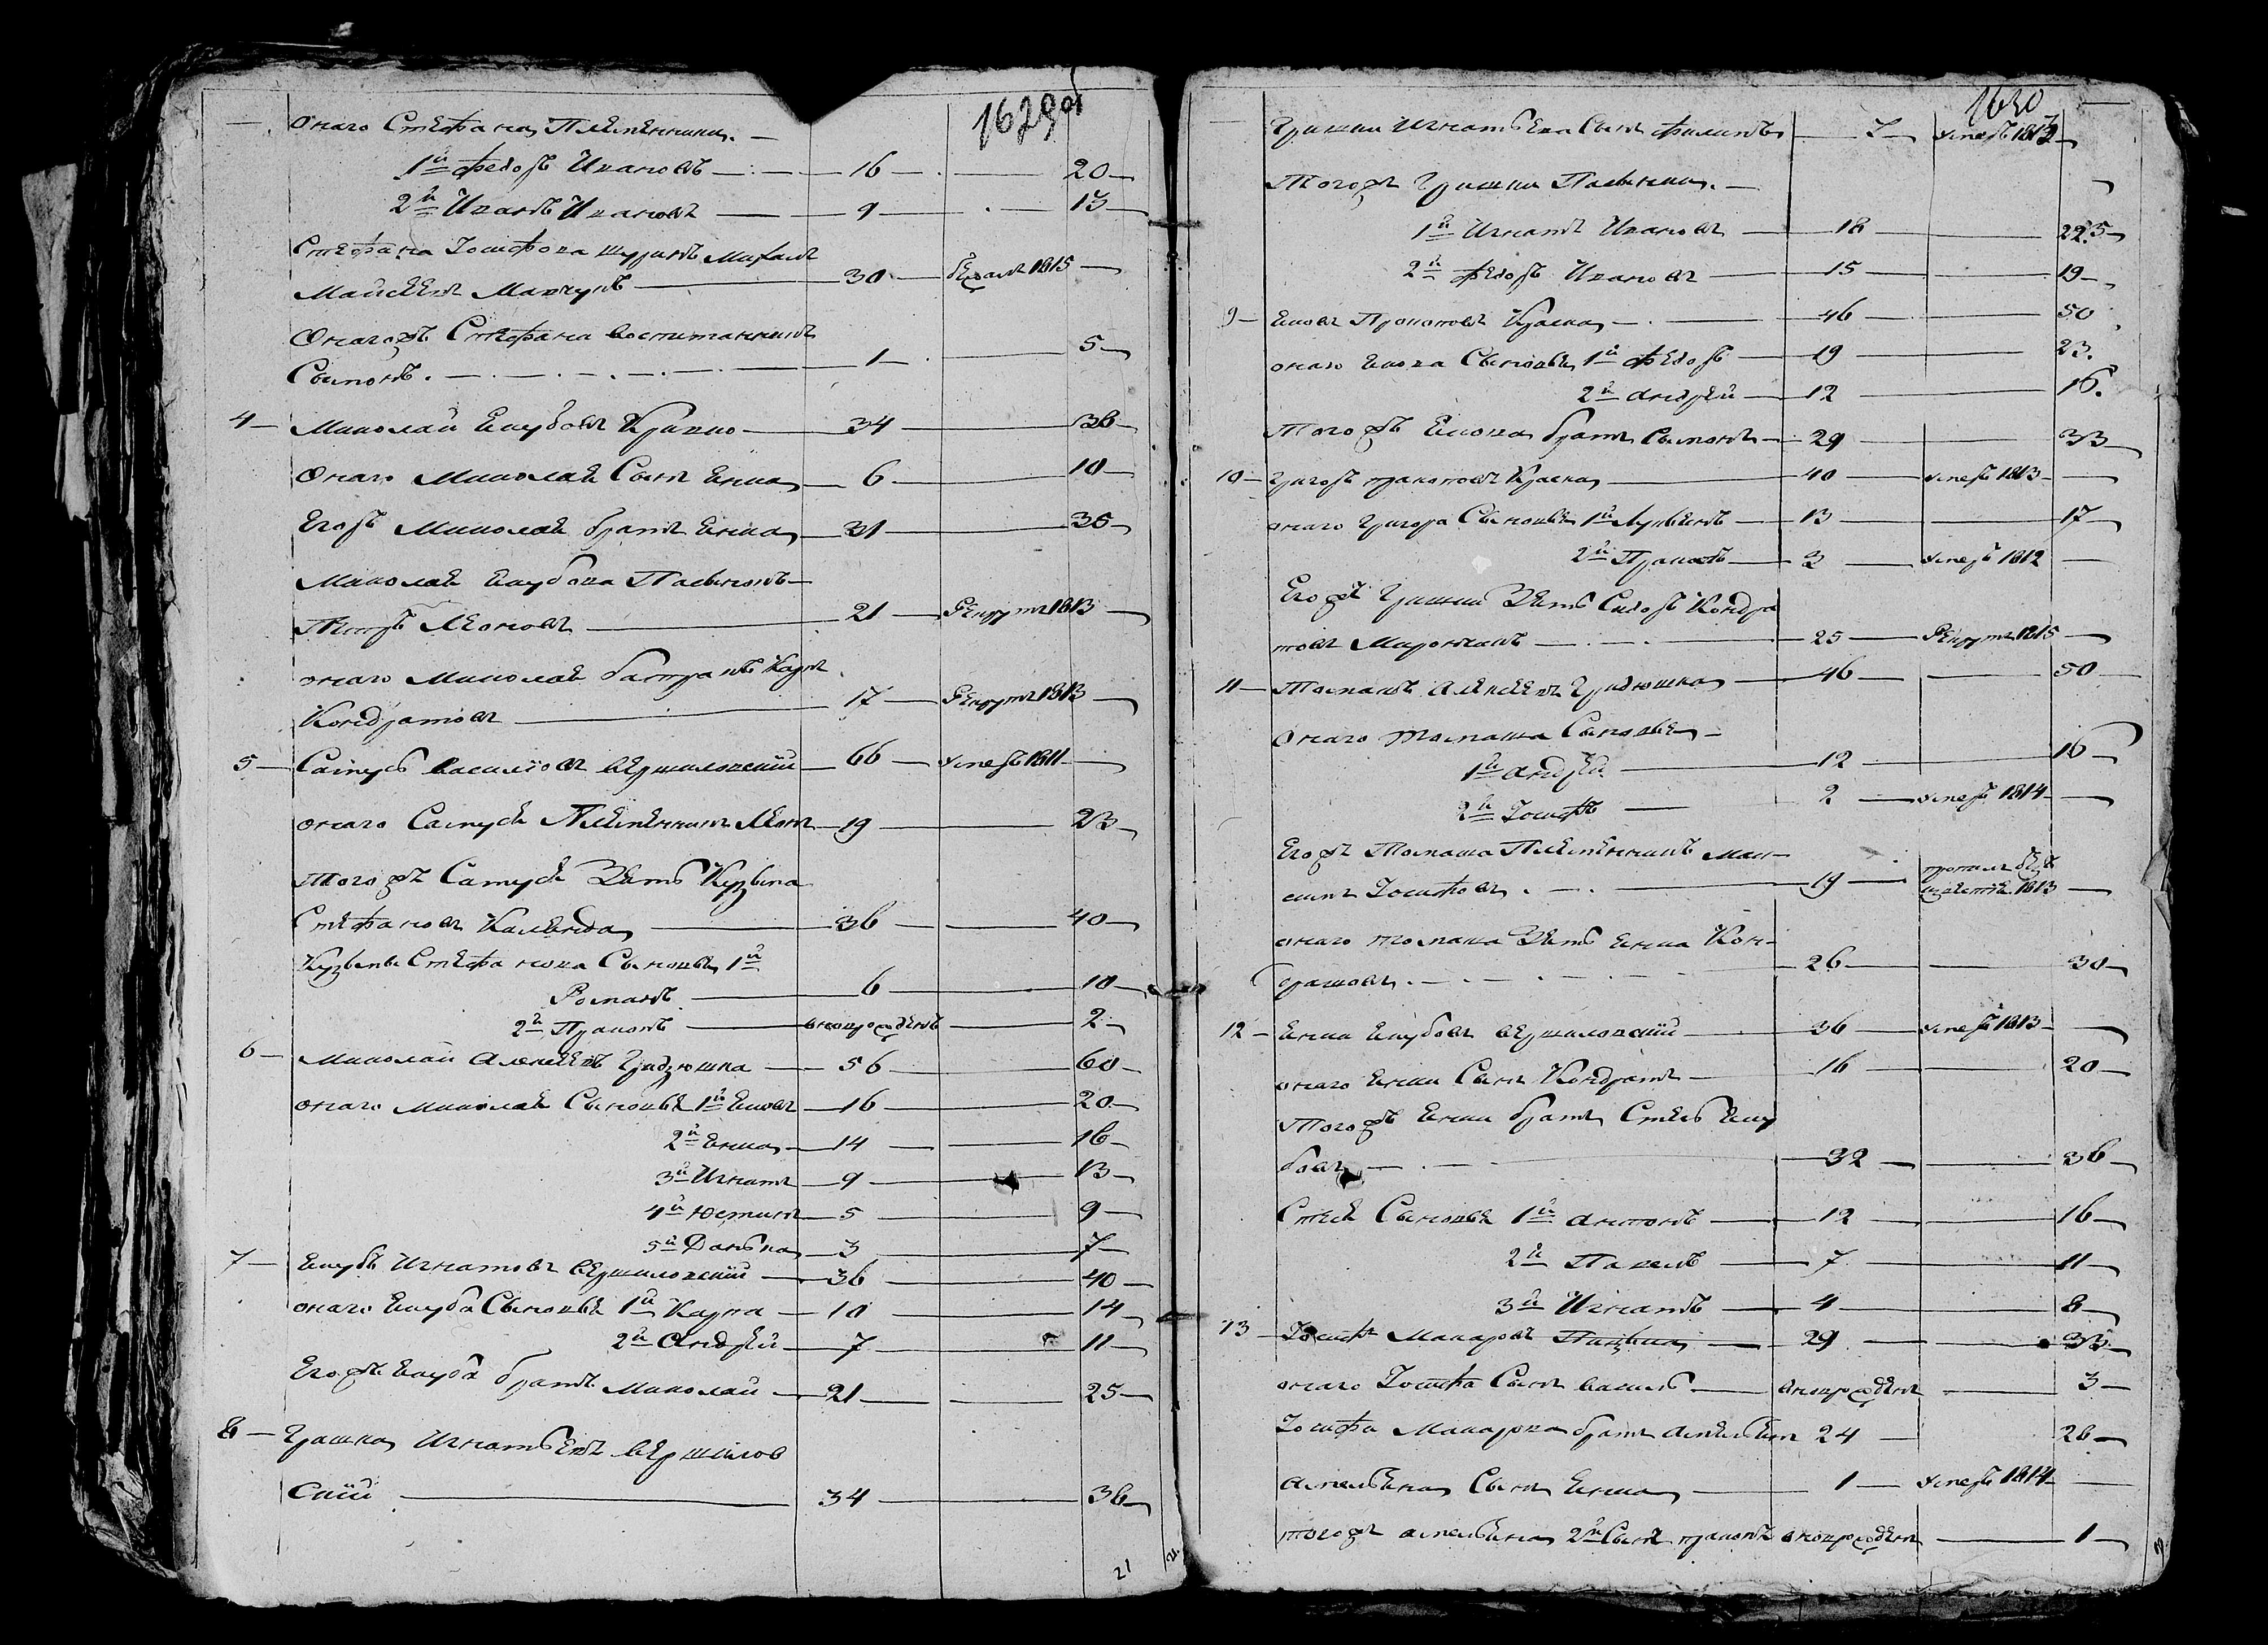 1629об
онаго Стефана Племенники
1й Федоръ Ивановъ 16 20
2й Иванъ Ивановъ 9 13
Стефана Іосифова шуринъ Михаилъ
Мойсеевъ 30 бежалъ 1815
Онагожъ Стефана воспитанникъ
Сымонъ 1 5
4 Миколай Якубовъ 34 38
Онаго Миколая Сынъ Янка 6 10
Егожъ Миколая братъ Янка 31 35
Миколая Якубова Пасынокъ
Петръ Леоновъ 21 Рекрутъ 1813
онаго Миколая Карпъ
Кондратовъ 17 Рекрутъ 1813
5 Сапусь Васильовъ Вершиловскій 66 умеръ 1811
онаго Сапуся Племенникъ Леонъ 19 23
Того жъ Сапуся Зять Кузьма
Стефановъ Календа 36 40
Кузьмы Стефанова Сыновья 1й
Романъ 6 10
2й Пракопъ вновророжденъ 2
6 Миколай Алексеевъ Гридзюшка 56 60
онаго Миколая Сыновья 1й Яковъ 16 20
2й Янка 14 18
3й Игнатъ 9 13
4й Юстинъ 5 9
5й Данька 3 7
7 Якубъ Игнатовъ Вершиловскій 36 40
онаго Якуба Сыновья 1й Карпа 10 14
2й Андрей 7 11
Егожъ Якуба братъ Миколай 21 25
8 Гришка Игнатьевъ Вершилов
скій 34 38
21
1630
Гришки Игнатьева Сынъ Филипъ 7 умеръ 1812
Тогожъ Гришки Пасынки
1й Игнатъ Ивановъ 18 22
2й Федоръ Ивановъ 15 19
9 Яковъ Прокоповъ Краска 46 50
онаго Якова Сыновья 1й Федоръ 19 23
2й Андрей 12 16
Тогожъ Якова братъ Сымонъ 29 33
10 Григоръ пракоповъ Краска 40 умеръ 1813
онаго Григора Сыновья 1й Лукьянъ 13 17
2й Пракопъ 3 умеръ 1812
Егожъ Гришки Зять Сидоръ Кондра
товъ 25 Рекрутъ 1815
11 Томашъ Алексеевъ Гридюшка 46 50
Онаго Томаша Сыновья
1й Андрей 12 16
2й Іосифъ 2 умеръ 1814
Егожъ Томаша Племенникъ Мак
симъ Іосифовъ 19 пропалъ безъ
1813
онаго Томаша Зять Янка Кон
дратовъ 26 30
12 Янка Якубовъ Вершиловскій 36 умеръ 1813
онаго Янки Сынъ Кондратъ 16 20
Тогожъ Янки братъ Стесь Яку
бовъ 32 36
Стеся Сыновья 1й Антонъ 12 16
2й Павелъ 7 11
3й Игнатъ 4 8
13 Іосифъ Макаровъ 29 33
онаго Іосифа Сынъ Василь вновророжденъ 3
Іосифа Макарова братъ Амельянъ 24 28
Амельяна Сынъ Янка 1 умеръ 1814
тогожъ амельяна 2й Сынъ пракопъ вновророжденъ 1